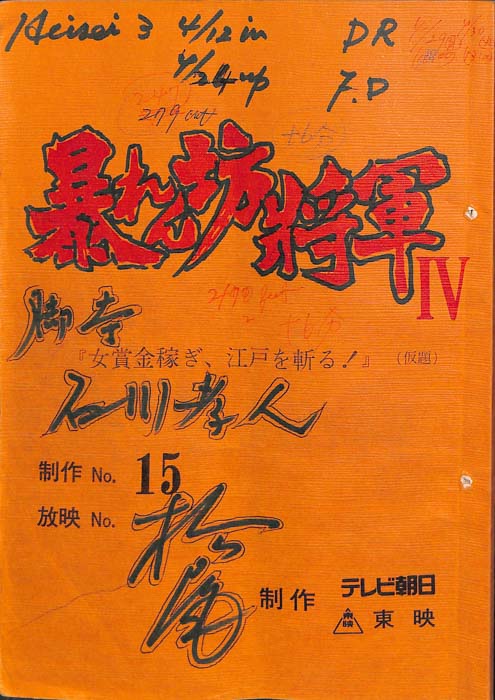 Heisei 3 4/12 in DR
4/24 up F.D
暴れん坊将軍
IV
脚本
『女賞金稼ぎ、江戸を斬る!』(仮題)
石川孝人
制作 No. 15
放映 No.
松尾
制作 テレビ朝日
東映 東映